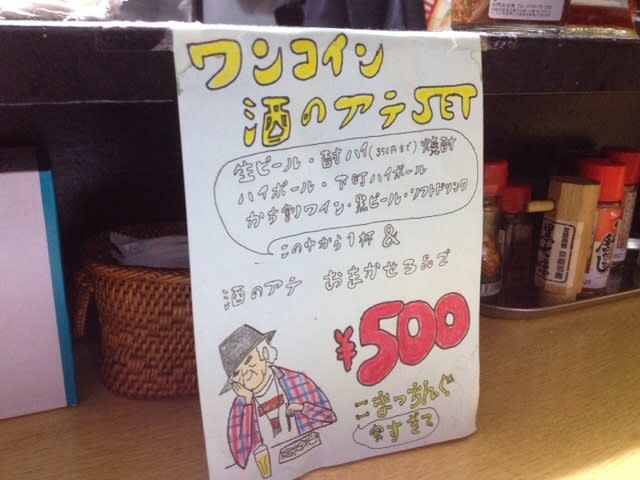 ワンコイン
酒のアテSET
生ビール・酎ハイ(350円まで)焼酎
ハイボール・下町ハイボール
かち割りワイン・黒ビール・ソフトドリンク
この中から1杯 &
酒のアテ おまかせ3品で
¥500
こまっちんぐ
安すぎて